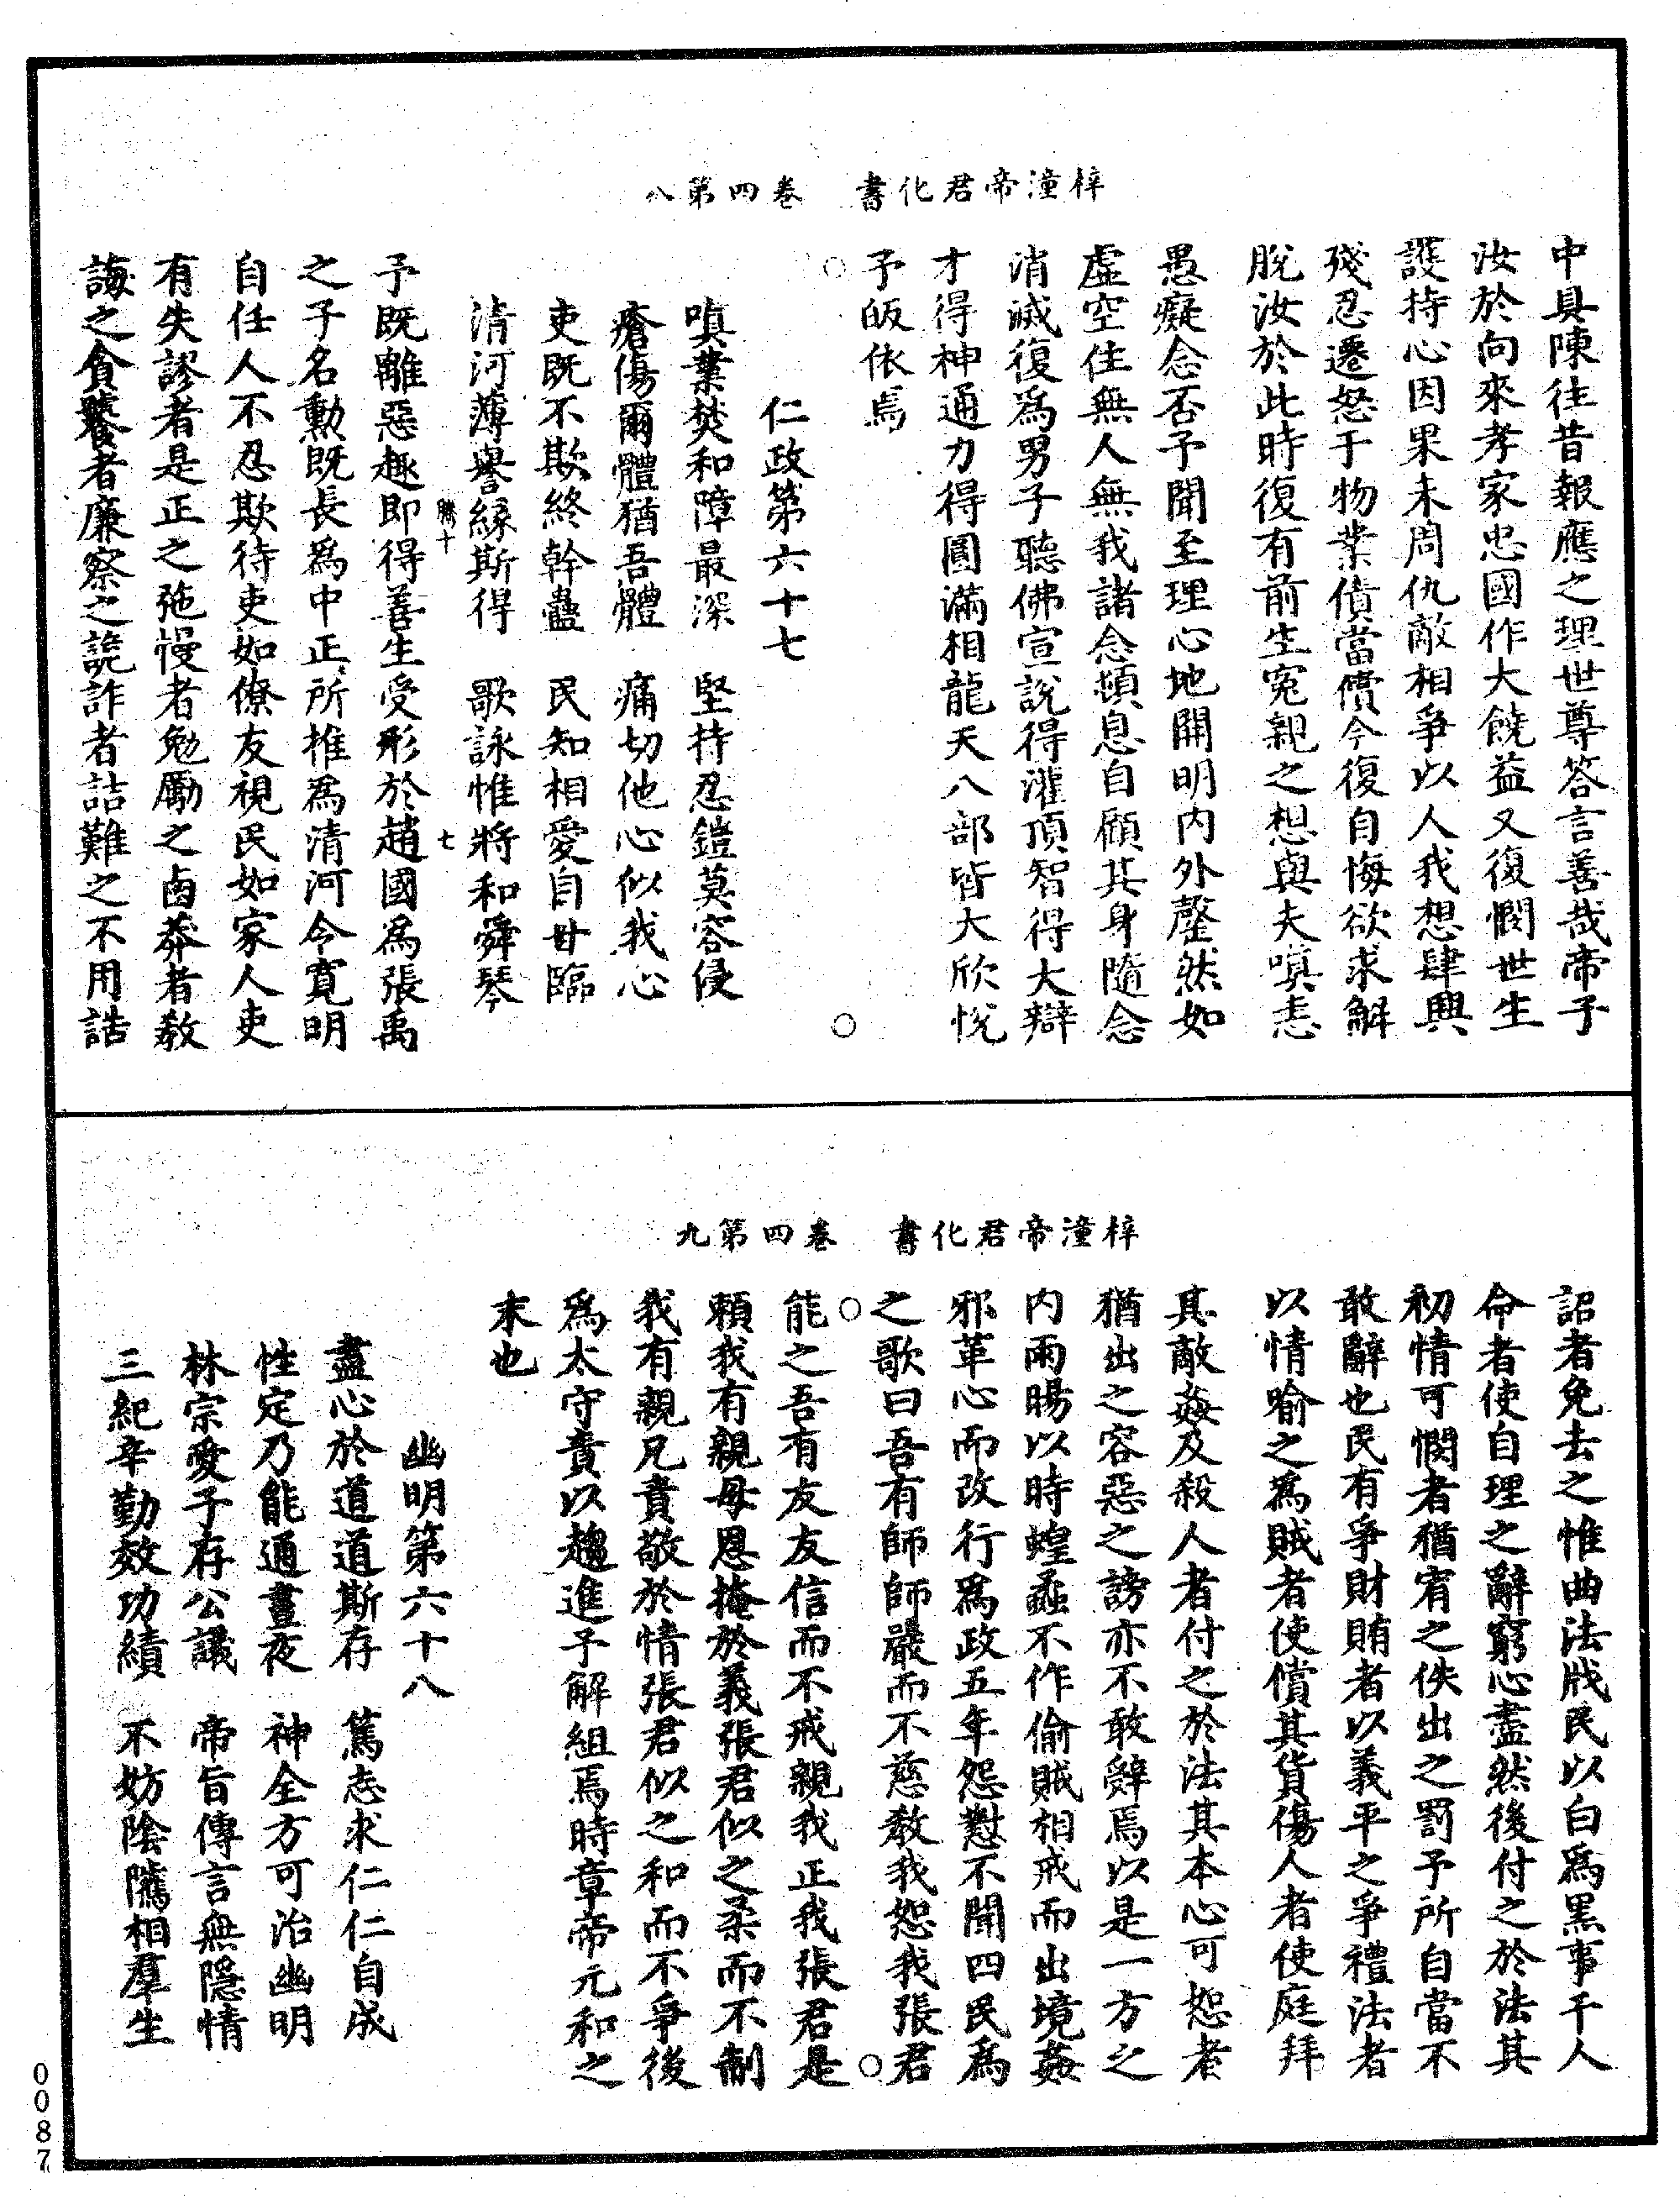 梓潼帝君化書　卷四第八
中具陳往昔報應之理世尊答言善哉帝子
汝於向來孝家忠國作大饒益又復憫世生
護持心因果未周仇敵相爭以人我想肆興
殘忍遷怒于物業債當償今復自悔欲求解
脫汝於此時復有前生冤親之想與夫嗔恚
愚癡念否予聞至理心地開明內外罄然如
虛空住無人無我諸念頓息自顧其身隨念
消滅復為男子聽佛宣說得灌頂智得大辯
才得神通力得圓滿相龍天八部皆大欣悅
予皈依焉
○　○
仁政第六十七
嗔業焚和障最深　堅持忍鎧莫容侵
瘡傷爾體猶吾體　痛切他心似我心
吏既不欺終幹蠱　民知相愛自甘臨
清河薄譽緣斯得　歌詠惟將和舜琴
騰十　七
予既離惡趣即得善生受形於趙國為張禹
之子名勳既長為中正所推為清河令寬明
自任人不忍欺待吏如僚友視民如家人吏
有失謬者是正之弛慢者勉勵之鹵莽者教
誨之貪饕者廉察之詭詐者詰難之不用誥
梓潼帝君化書　卷四第九
詔者免去之惟曲法戕民以白為黑事干人
命者使自理之辭窮心盡然後付之於法其
初情可憫者猶宥之佚出之罰予所自當不
敢辭也民有爭財賄者以義平之爭禮法者
以情喻之為賊者使償其貨傷人者使庭拜
其敵姦及殺人者付之於法其本心可恕者
猶出之容惡之謗亦不敢辭焉以是一方之
內雨暘以時蝗螽不作偷賊相戒而出境姦
邪革心而改行為政五年怨懟不聞四民為
之歌曰吾有師師嚴而不慈教我恕我張君
○　○
能之吾有友友信而不戒親我正我張君是
賴我有親母恩掩於義張君似之柔而不制
我有親兄責敬於情張君似之和而不爭後
為太守責以趨進予解組焉時章帝元和之
末也
幽明第六十八
盡心於道道斯存　篤志求仁仁自成
性定乃能通晝夜　神全方可治幽明
林宗愛子存公議　帝旨傳言無隱情
三紀辛勤效功績　不妨陰騭相群生
0087